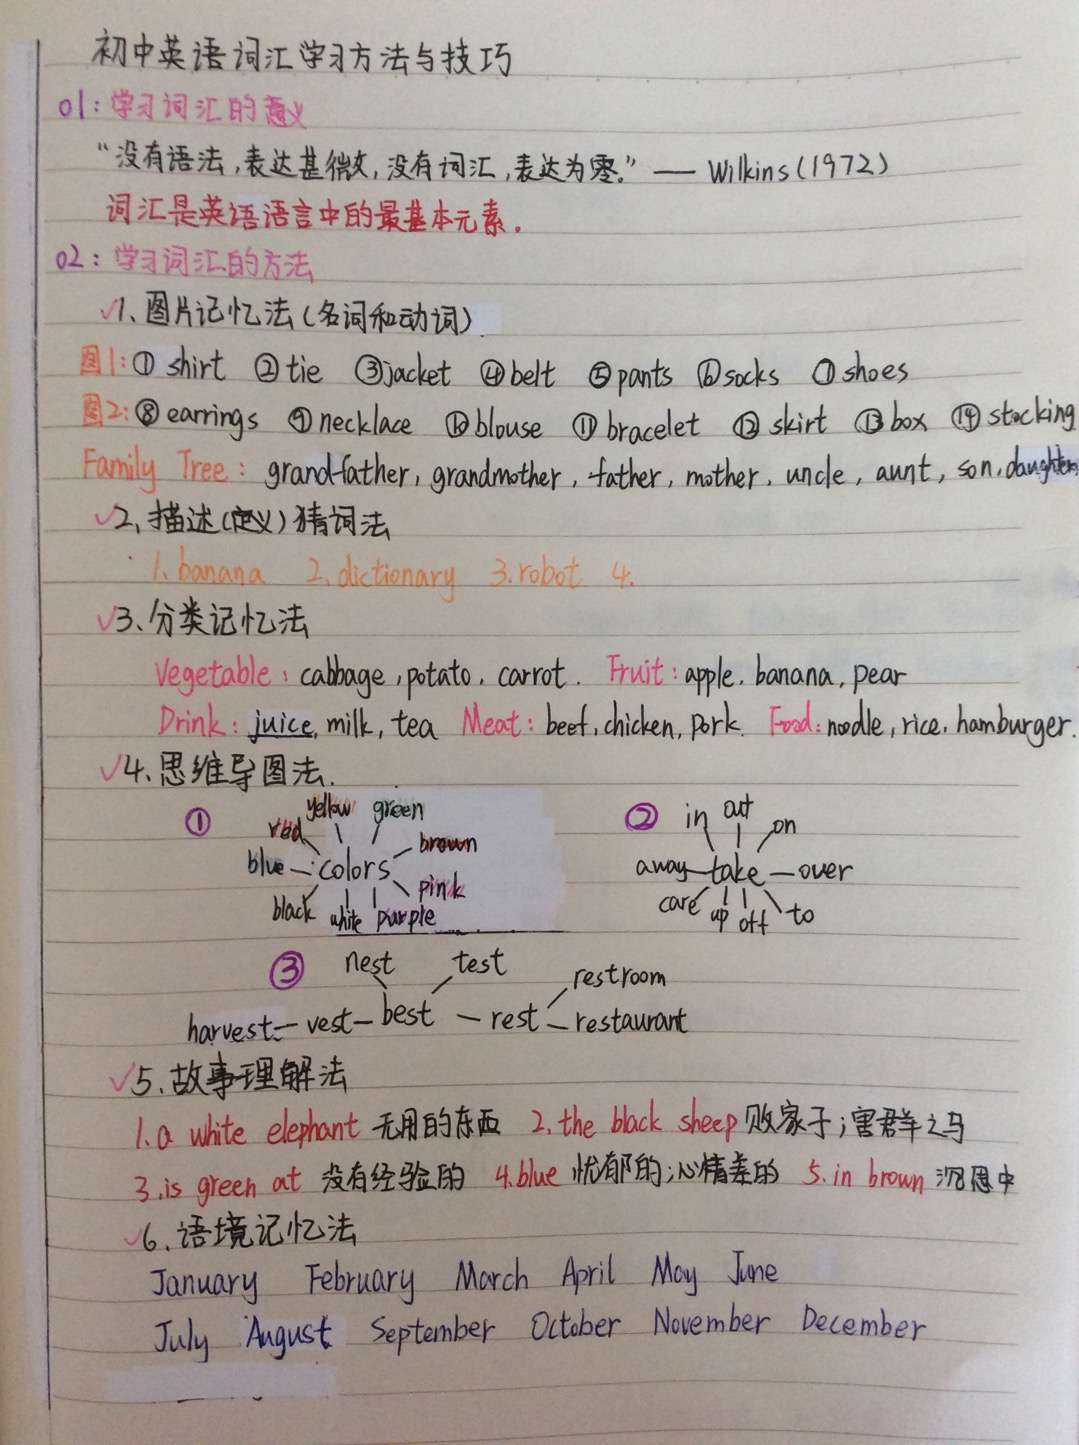 初中英语词汇学习方法与技巧
01:学习词汇的意义
“没有语法,表达甚微,没有词汇,表达为零.” —— Wilkins(1972)
词汇是英语语言中的最基本元素.
02:学习词汇的方法
✓1、图片记忆法(名词和动词)
图1:① shirt ②tie ③jacket ④belt ⑤pants ⑥socks ⑦shoes
图2:⑧earrings ⑨necklace ⑩blouse ⑪bracelet ⑫skirt ⑬box ⑭stocking
Family Tree: grandfather, grandmother, father, mother, uncle, aunt, son, daughter
✓2、描述(定义)猜词法
1.banana 2.dictionary 3.robot 4.
✓3、分类记忆法
Vegetable: cabbage, potato, carrot. Fruit: apple, banana, pear
Drink: juice, milk, tea Meat: beef, chicken, pork. Food: noodle, rice, hamburger.
✓4、思维导图法.
① yellow green ② in out on
red brown
blue colors away take over
black white purple pink care up off to
③ nest test restroom
harvest vest best rest restaurant
✓5、故事理解法
1.a white elephant 无用的东西 2.the black sheep 败家子;害群之马
3.is green at 没有经验的 4.blue 忧郁的;心情差的 5.in brown 沉思中
✓6、语境记忆法
January February March April May June
July August September October November December